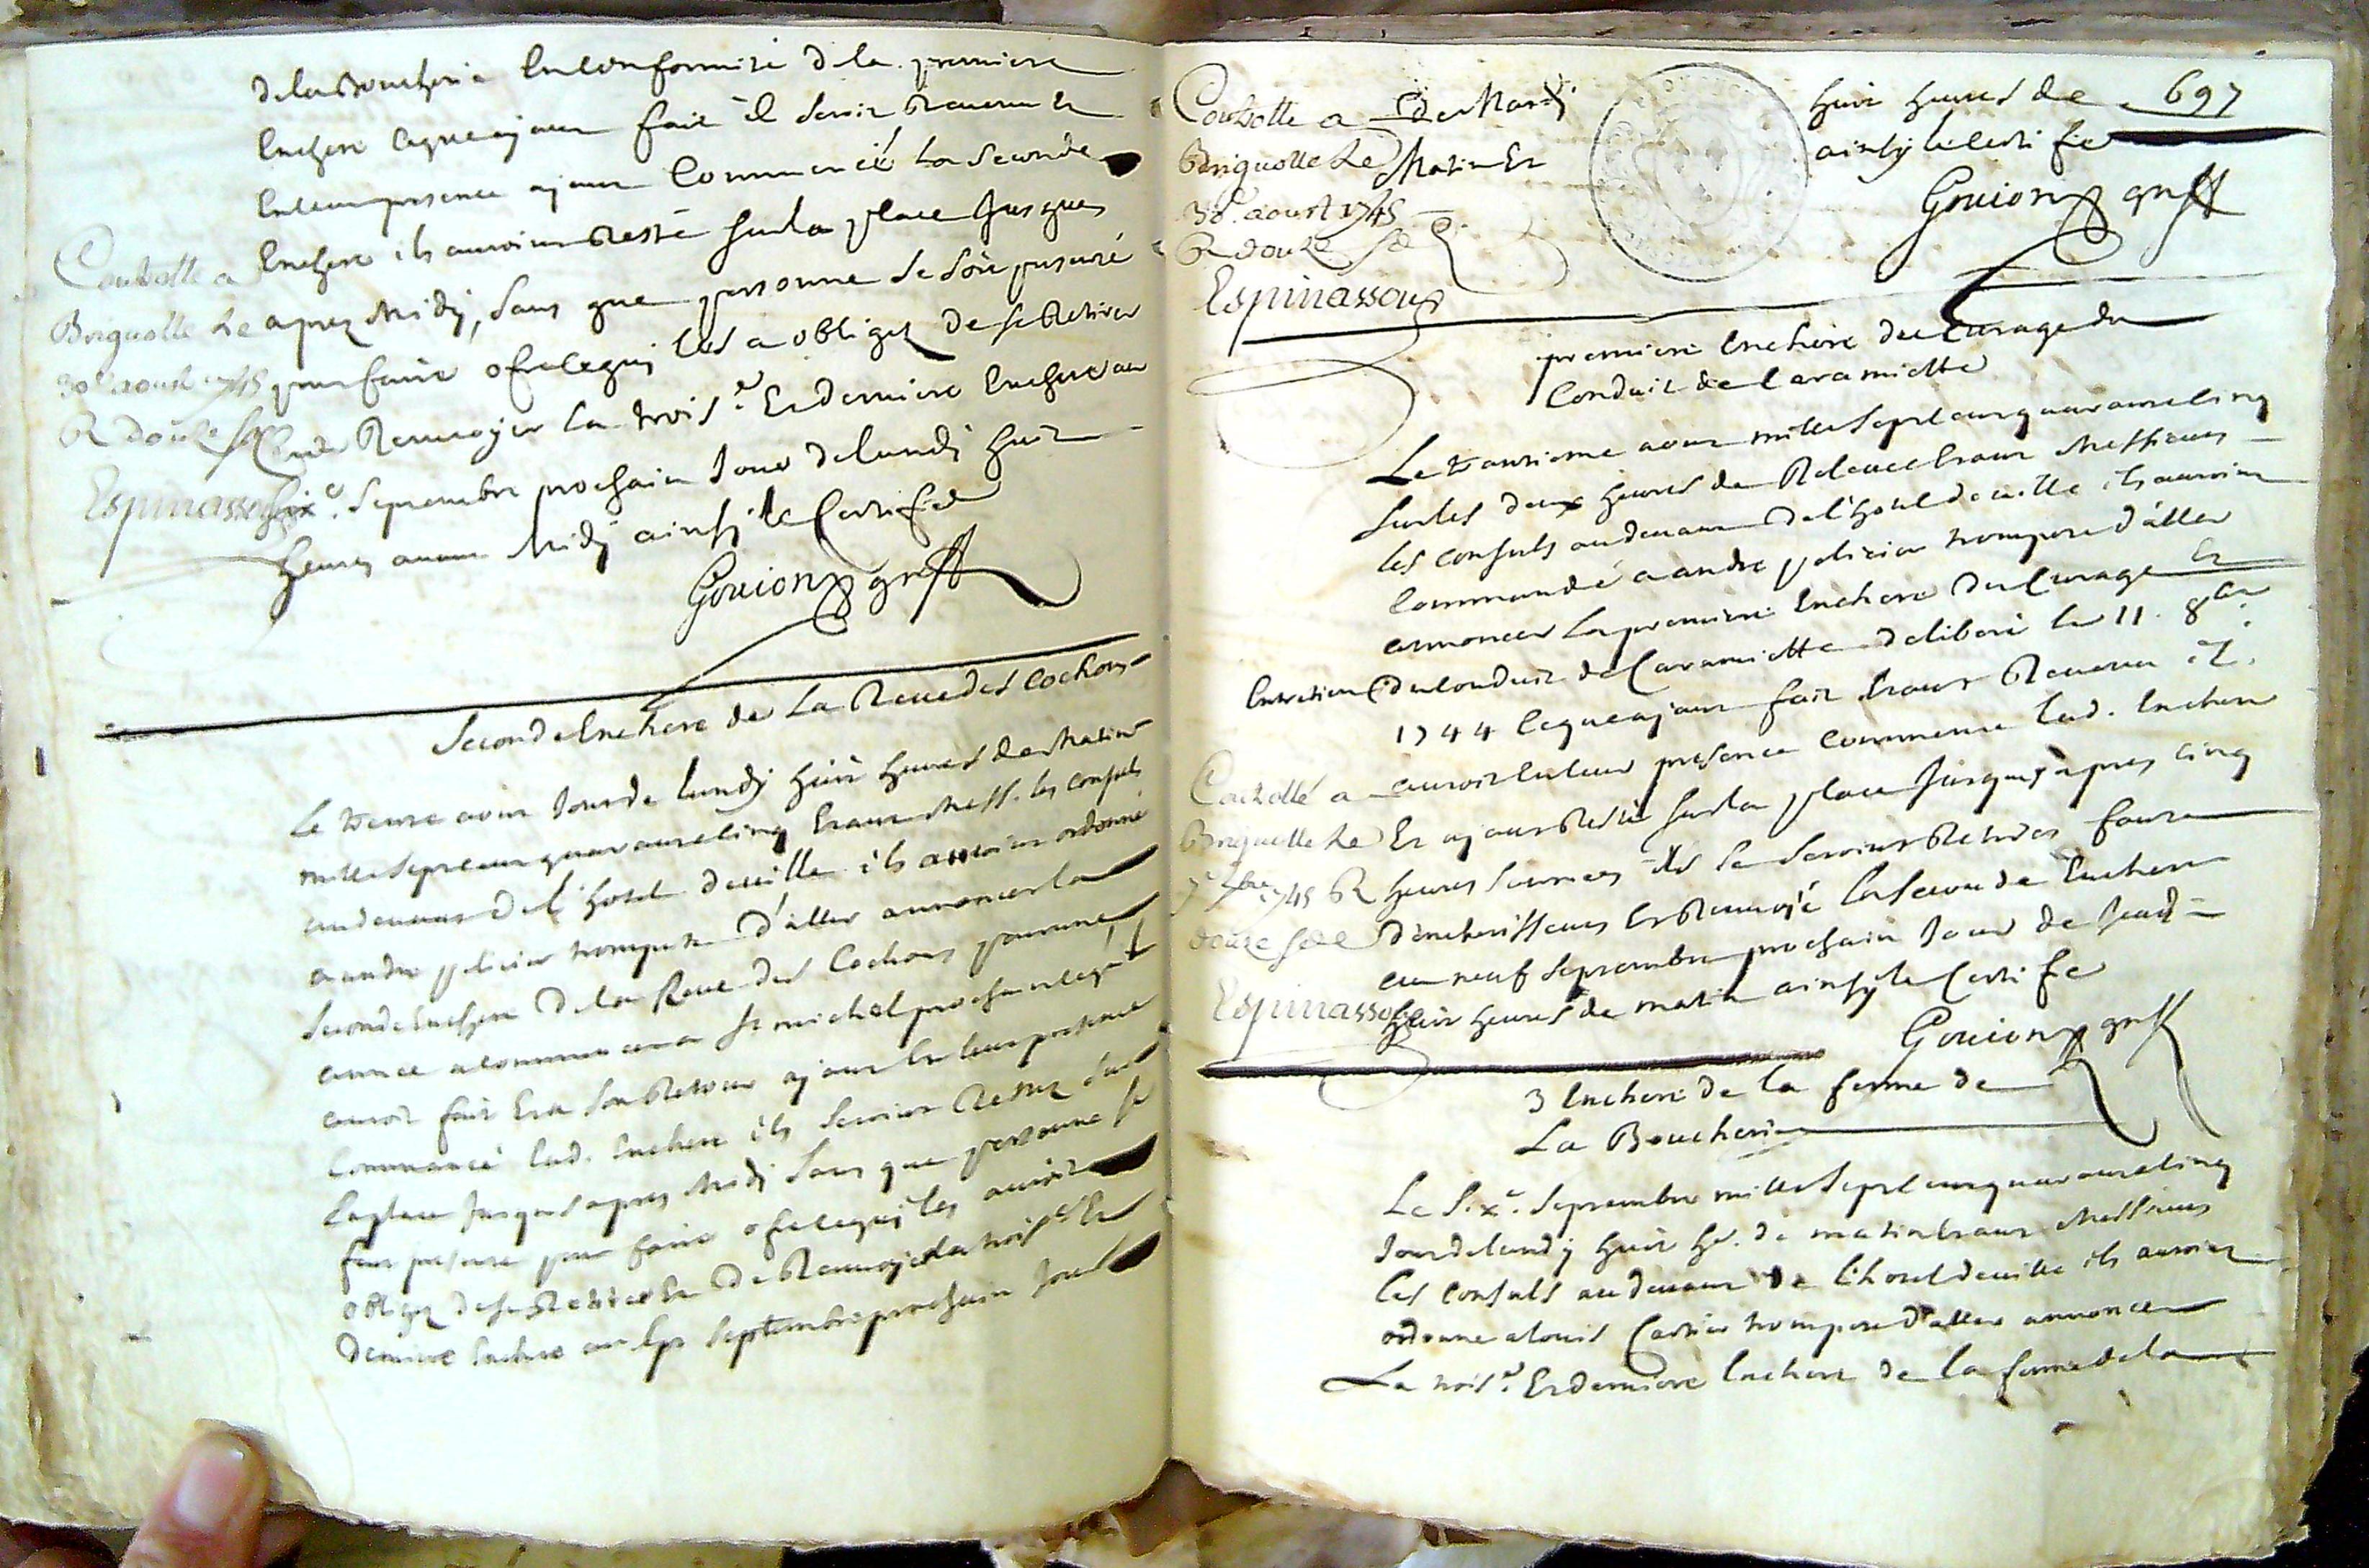 de la Boucherie en conformité de la premiere
enchere ce que ayant fait il seroit Revenu et
en leur presence ayant Commencé la seconde
enchere ils auroint Resté sur la place Jusques
apres Midy, sans que personne se soit presenté
pour faire ofre ce qui les a obligez de se Retirer
et de Renvoyer la trois.e et derniere enchere au
six.e septembre prochain Jour de lundi huit
heures avant Midy ainsi le certifie
Gouion greff
Controllé a
Brignolle le
30e aoust 1745
R douze s
Espinasson
Seconde enchere de la Reve des cochons
Le trente aout Jour de lundy huit heures de matin
mille sept cent quarante cinq etant Mess. les consuls
au devant de l'hotel de ville ils auroint ordonné
a andre pelicier trompete d'aller annoncer la
seconde enchere de la Reve des cochons pour une
année a commencer a st michel prochain lequel
auroit fait et a son Retour ayant en leur presence
commancé lad. enchere ils seroint Restez sur
la place Jusques apres Midi sans que personne se
soit presenté pour faire ofre ce qui les auroit
obligez de se Retirer et de Renvoyer la trois.e et
derniere enchere au six septembre prochain Jour
697
de Mardy
Matin et
huit heures de
ainsy le certifie
Gouion greff
Controllé a
Brignolle le
30e aoust 1745
R douze s d
Espinasson
premiere enchere du Curage du
Conduit de Caramiette
Le trantieme aout mille sept cent quarante cinq
sur les deux heures de Relevée etant Messieurs
les consuls au devant de l'hotel de ville ils auroint
commandé a andre pelicier trompete d'aller
annoncer la premiere enchere du Curage et
entretien du conduit de Caramiette deliberé le 11. 8bre
1744 ce que ayant fait etant Revenu il
auroit en leur presence commencé lad. enchere
et ayant Resté sur la place Jusques apres cinq
heures sonnées ils se seroint Retirés faute
d'encherisseurs et Renvoyé la seconde enchere
au neuf septembre prochain Jour de Jeudi
huit heures de matin ainsy le certifie
Gouion greff
Controllé a
Brignolle le
7e 7bre 1745 R
douze s d
Espinasson
3 enchere de la ferme de
La Boucherie
Le six.e septembre mille sept cent quarante cinq
Jour de lundy huit he. de matin etant Messieurs
les consuls au devant de l'hotel de ville ils auroint
ordonne a louis Cartier trompete d'aller annoncer
La trois.e et derniere enchere de la ferme de la